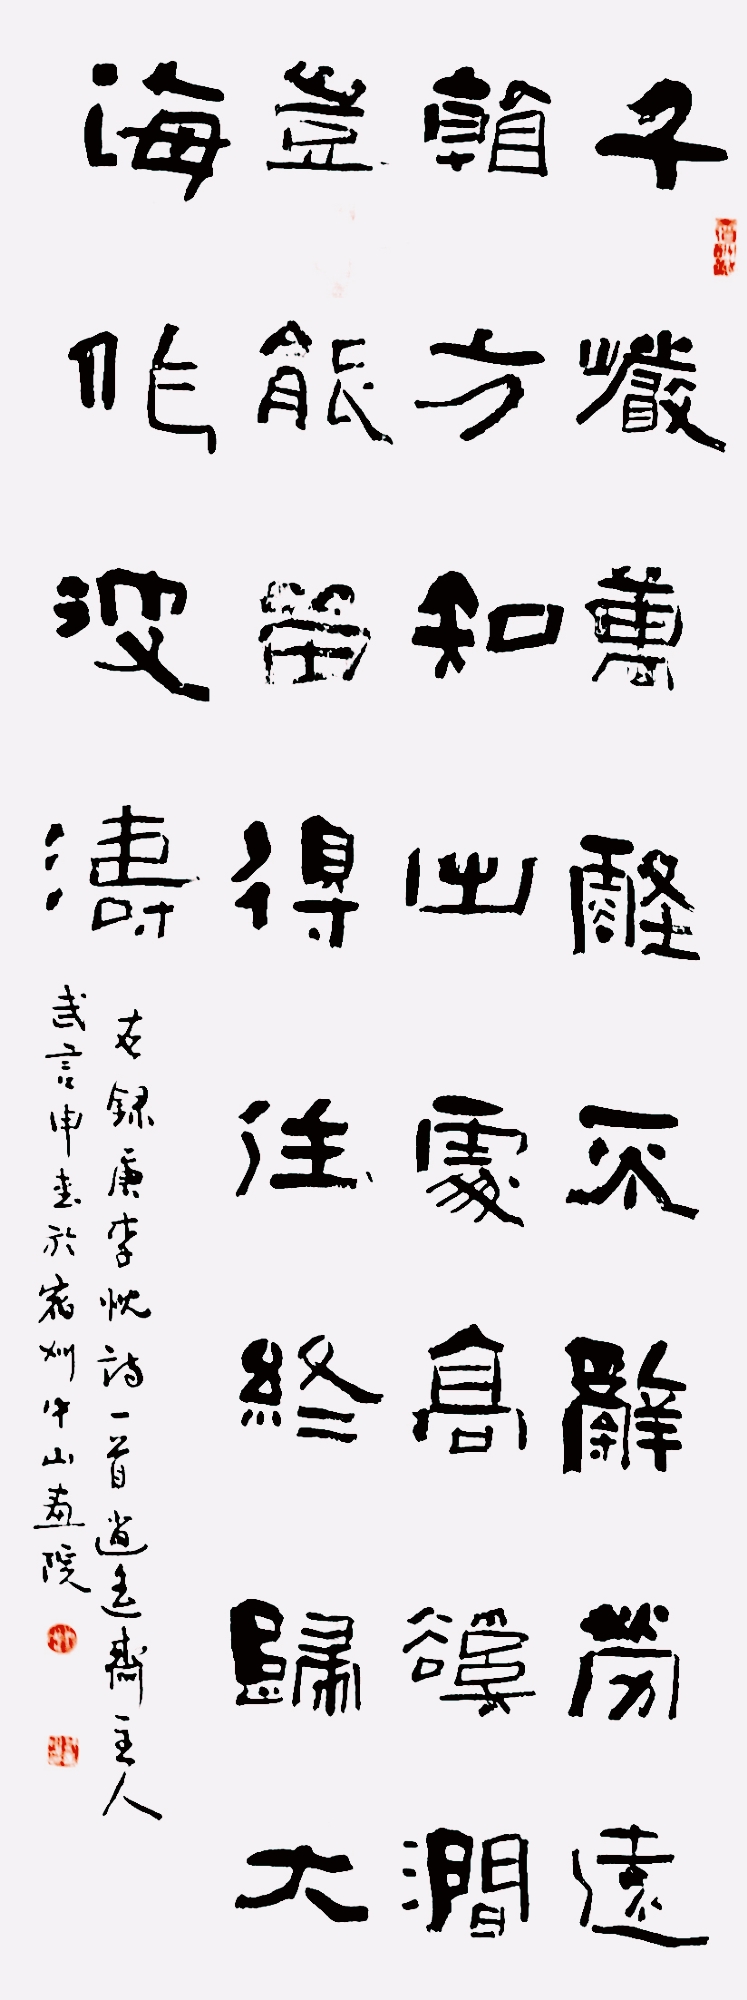 千巖萬壑不辭勞遠
看方知出處高谿澗
豈能留得住終歸大
海作波濤
右録唐李忱詩一首逍遥齋主人
武言申書於宿州山畫院